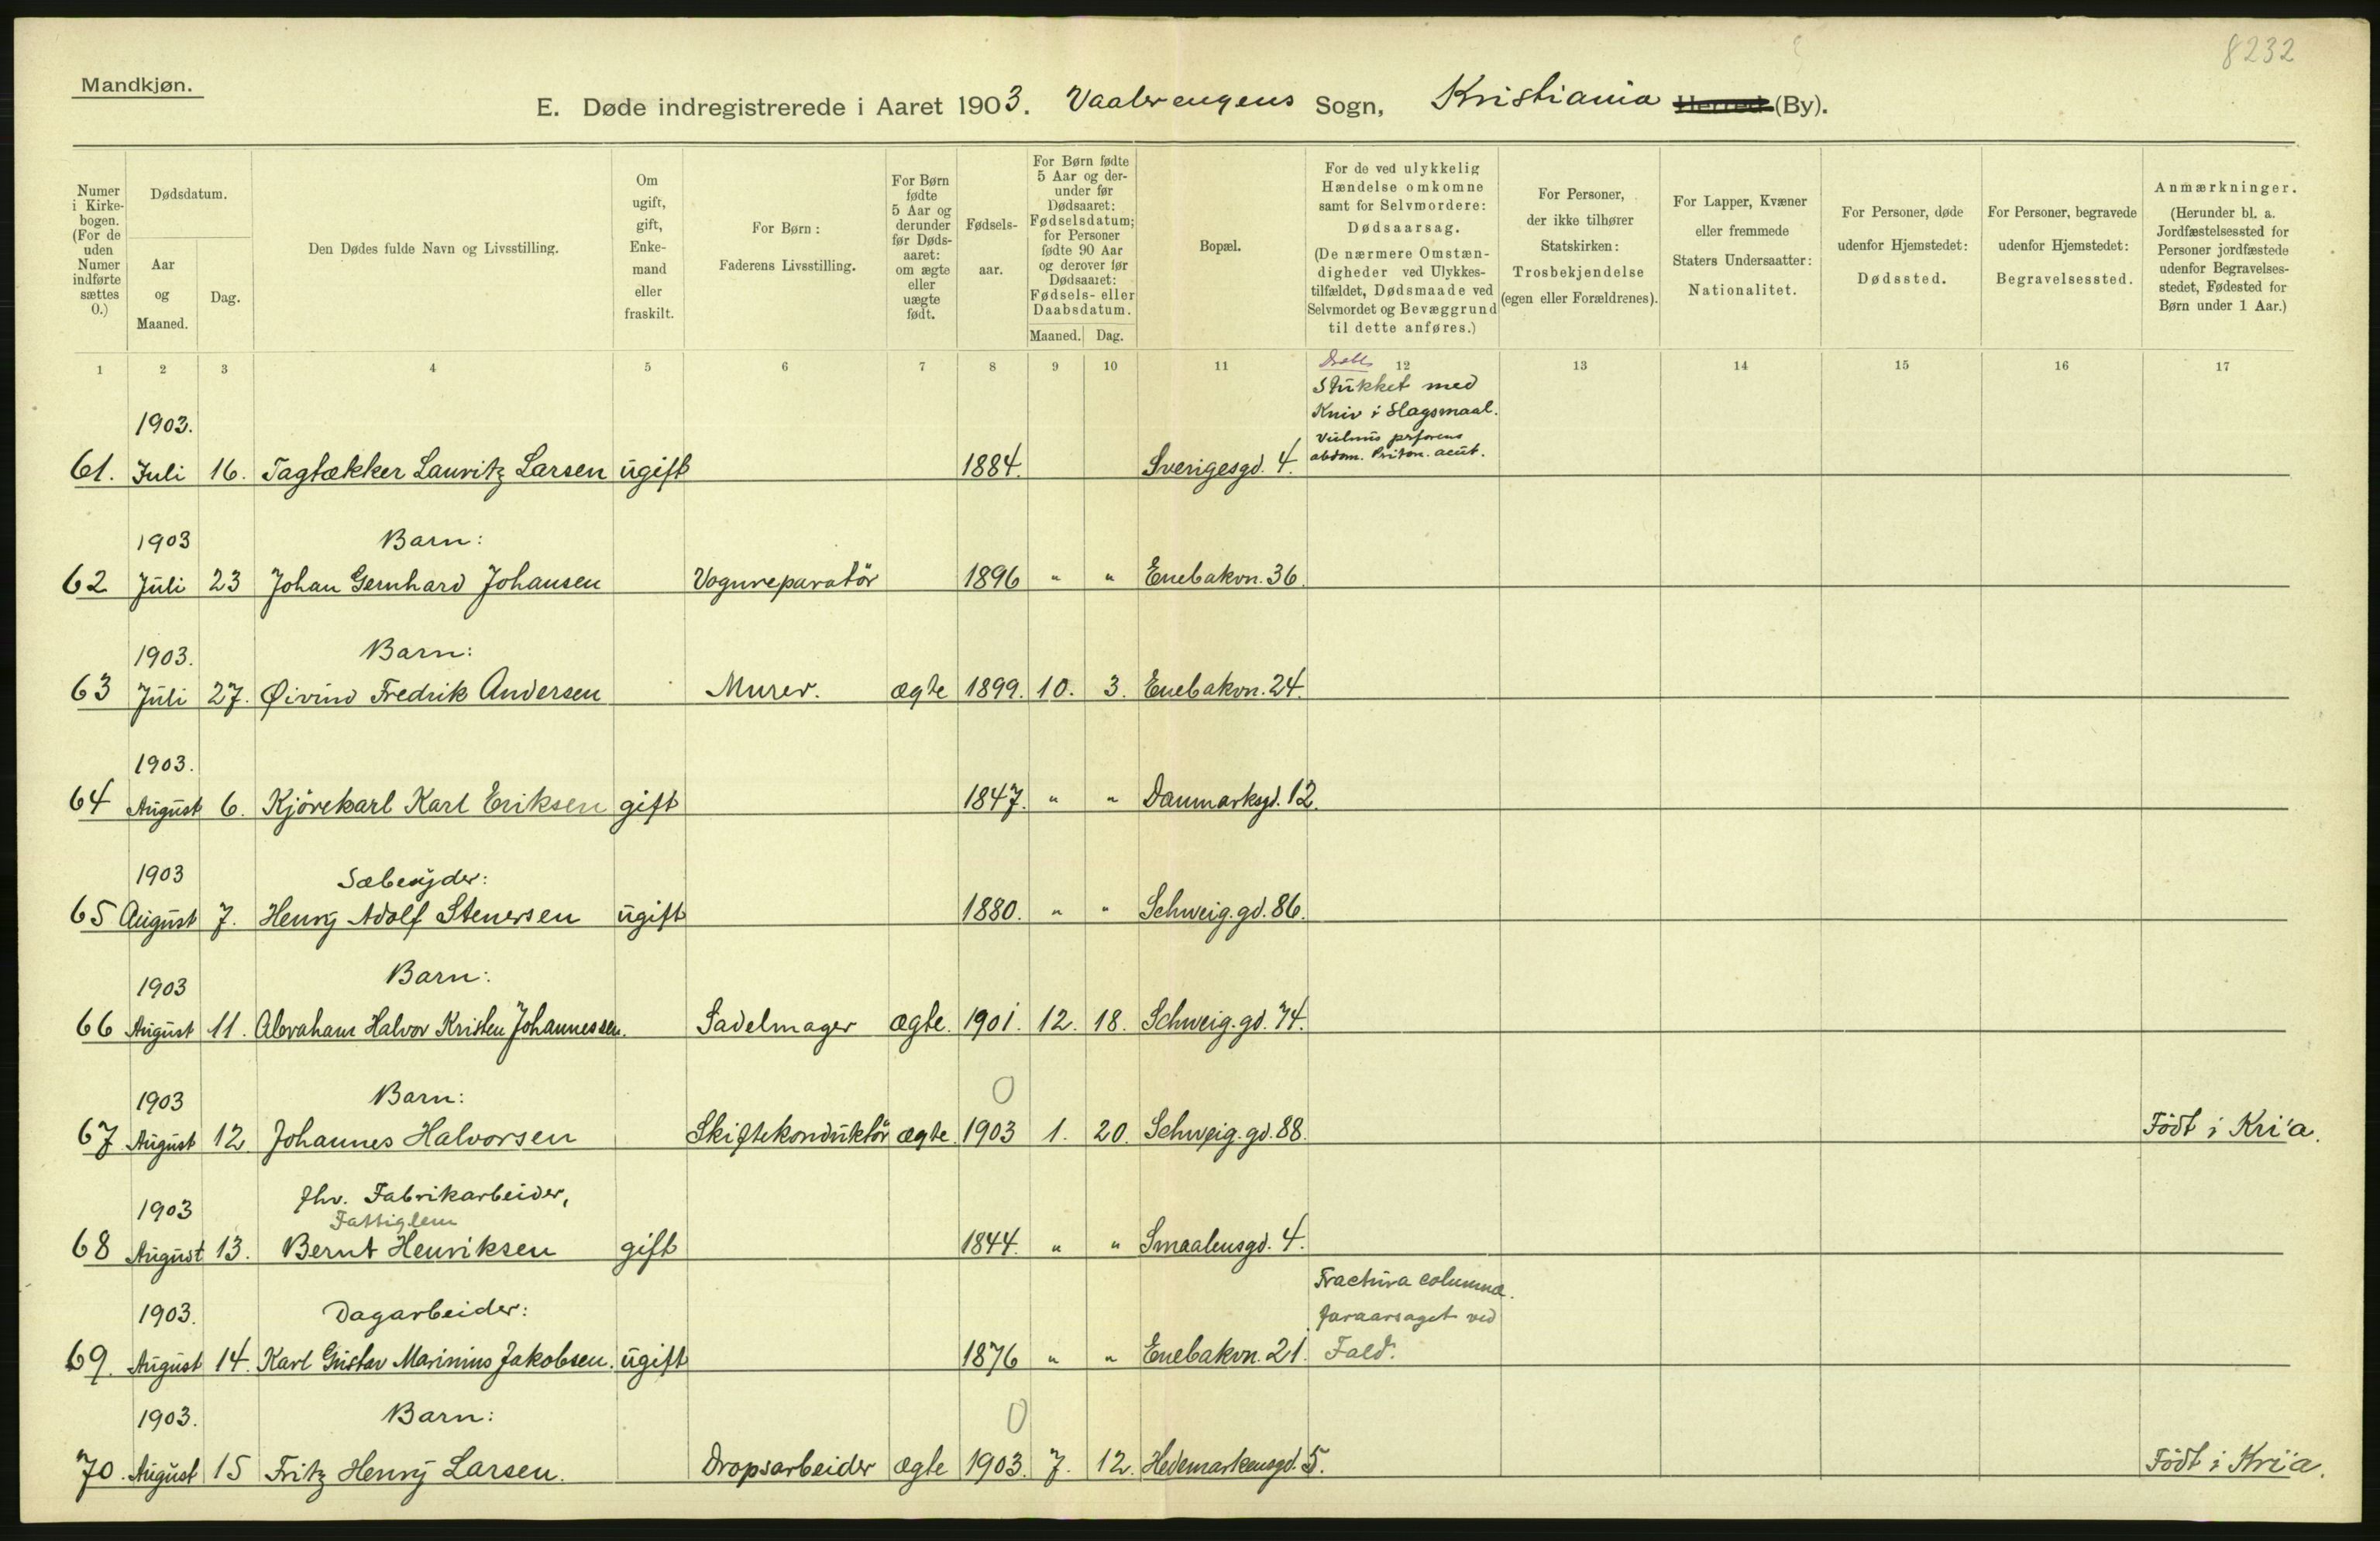 8232
Mandkjøn.
E. Døde indregistrerede i Aaret 1903. Vaalerengens Sogn, Kristiania Herred (By).
Numer i Kirkebogen. (For de uden Numer indførte sættes 0.)
Dødsdatum.
Aar og Maaned.
Dag.
Den Dødes fulde Navn og Livsstilling.
Om ugift, gift, Enkemand eller fraskilt.
For Børn: Faderens Livsstilling.
For Børn fødte 5 Aar og derunder før Dødsaaret: om ægte eller uægte født.
Fødselsaar.
For Børn fødte 5 Aar og derunder før Dødsaaret: Fødselsdatum; for Personer fødte 90 Aar og derover før Dødsaaret: Fødsels- eller Daabsdatum.
Maaned. Dag.
Bopæl.
For de ved ulykkelig Hændelse omkomne samt for Selvmordere: Dødsaarsag. (De nærmere Omstændigheder ved Ulykkestilfældet, Dødsmaade ved Selvmordet og Bevæggrund til dette anføres.)
For Personer, der ikke tilhører Statskirken: Trosbekjendelse (egen eller Forældrenes).
For Lapper, Kvæner eller fremmede Staters Undersaatter: Nationalitet.
For Personer, døde udenfor Hjemstedet: Dødssted.
For Personer, begravede udenfor Hjemstedet: Begravelsessted.
Anmærkninger. (Herunder bl. a. Jordfæstelsessted for Personer jordfæstede udenfor Begravelsesstedet, Fødested for Børn under 1 Aar.)
1 2 3 4 5 6 7 8 9 10 11 12 13 14 15 16 17
Stukket med
Kniv i Slagsmaal.
1903.
Vulnus
abdom. acut.
61. Juli 16. Tagtækker Lauritz Larsen ugift 1884. Sverigesgd. 4.
1903 Barn:
62 Juli 23 Johan Gernhard Johansen Vognreparatör 1896 " " Enebakvn. 36.
1903. Barn:
63 Juli 27. Øivind Fredrik Andersen Murer. ægte 1899. 10. 3. Enebakvn. 24.
1903.
64 August 6. Kjörekarl Karl Eriksen gift 1847. " " Danmarksgd. 12.
1903 Sæbesyder:
65 August 7. Henry Adolf Stenersen ugift 1880. " " Schweig.gd. 86.
1903 Barn:
66 August 11. Abraham Halvor Kristen Johannessen. Sadelmager ægte. 1901. 12. 18. Schweig.gd. 74.
1903 Barn: 0
67 August 12. Johannes Halvorsen Skiftekonduktör ægte 1903 1. 20. Schweig.gd. 88. Födt i Kri'a.
1903 fhv. Fabrikarbeider,
Fattiglem
68 August 13. Bernt Henriksen gift 1844. " " Smaalensgd. 4.
Fractura columna.
1903. Dagarbeider: foraarsaget ved
69. August 14. Karl Gustav Marinius Jakobsen. ugift 1876 " " Enebakvn. 21. Fald.
1903. Barn: 0
70. August 15 Fritz Henry Larsen. Dropsarbeider ægte 1903. 7. 12. Hedemarkensgd. 5. Födt i Kri'a.